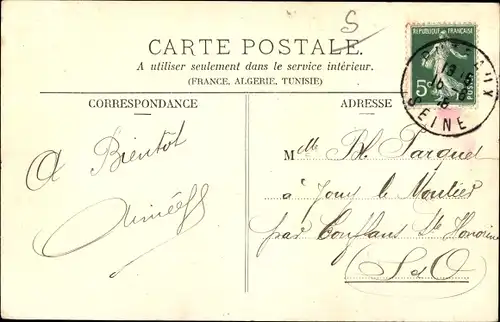 S
CARTE POSTALE
A utiliser seulement dans le service intérieur.
(FRANCE, ALGERIE, TUNISIE)
RÉPUBLIQUE FRANÇAISE
5c
POSTES
SEINE
CORRESPONDANCE
ADRESSE
A Bientôt
Aimée
Mlle Bl. Parquet
à Jouy le Moutier
par Conflans Ste Honorine
S & O